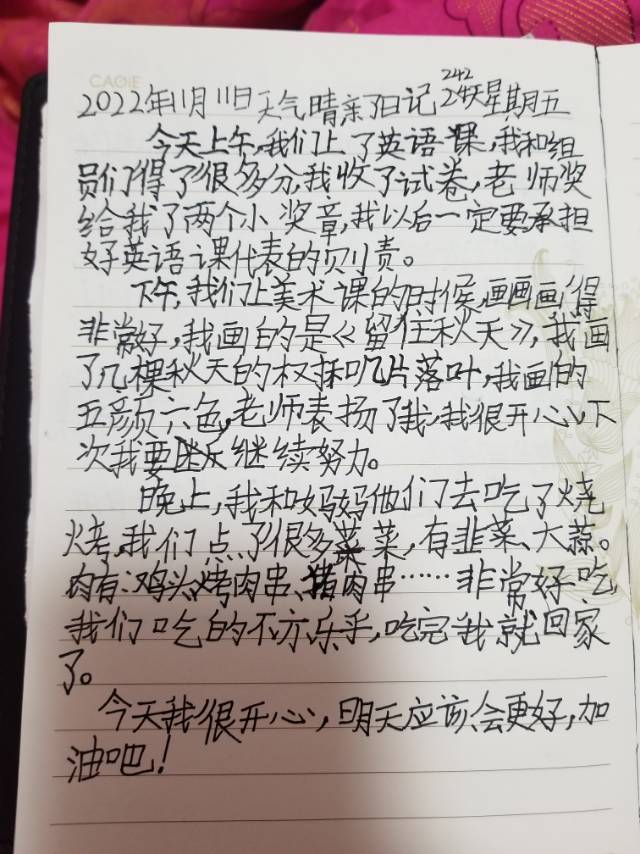 CAOIE
2022年11月11日天气晴亲子日记242天星期五
今天上午,我们上了英语课,我和组
员们得了很多分,我收了试卷,老师奖
给我了两个小奖章,我以后一定要承担
好英语课代表的职责。
下午,我们上美术课的时候,画画画得
非常好,我画的是《留住秋天》,我画
了几棵秋天的权和几片落叶,我画的
五颜六色,老师表扬了我,我很开心,下
次我要继续努力。
晚上,我和妈妈他们去吃了烧
烤,我们点了很多菜,有韭菜、大蒜。
肉有:鸡头、烤肉串、猪肉串……非常好吃,
我们吃的不亦乐乎,吃完我就回家
了。
今天我很开心,明天应该会更好,加
油吧!